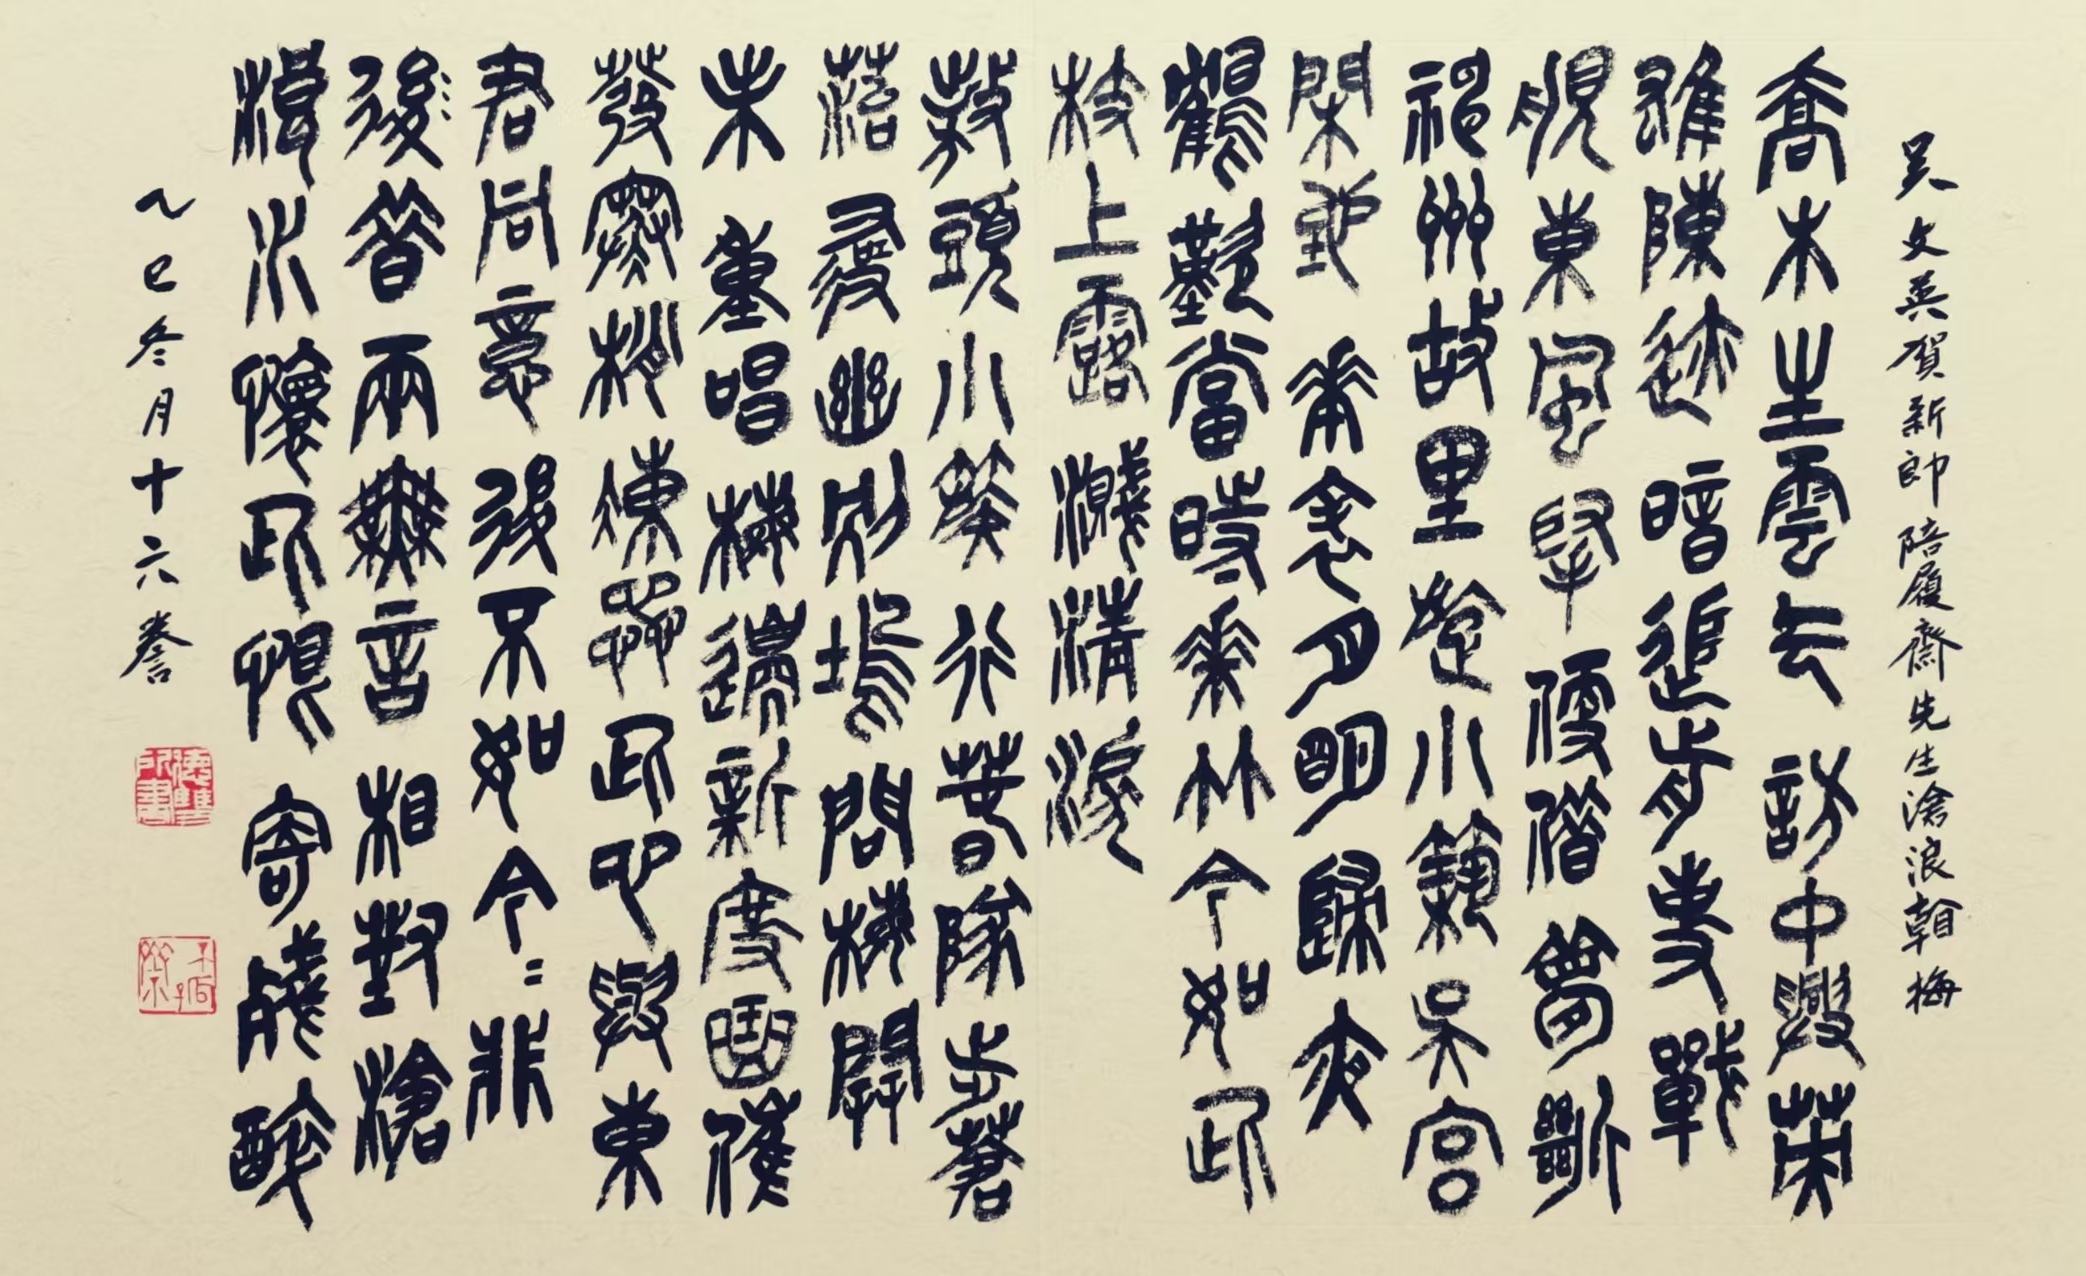 吳文英賀新郎陪履齋先生滄浪看梅
喬木生雲气訪中興英
雄陳迹暗追前事戰
艦東風慳便借夢斷
神州故里旋小築吳宮
閑地華表月明歸夜
鶴歎當時花竹今如此
枝上露濺清淚
遨頭小簇行春隊步蒼
苔尋幽別塢問梅開
未重唱梅邊新度曲催
發寒梢凍蕊此心與東
君同意後不如今=非
後昔兩無言相對滄
浪水懷此恨寄殘醉
乙巳冬月十六誊